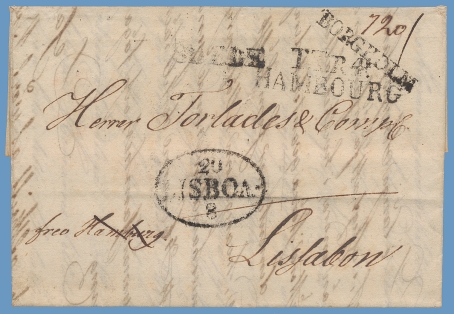 720
BORGHOLM
SUEDE. PAR 4.
HAMBOURG
Herrer Torlades & Comp.
29
LISBOA
8
free Hamburg
Lissabon